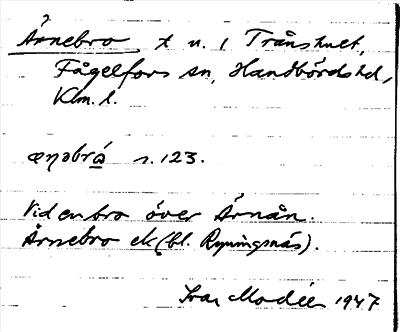 Årnebro t u. 1 Trånshult,
Fågelfors sn, Handbörds hd,
Klm. l.
s. 123.
Vid en bro över Årnån.
Årnebro ek (bl. Ryningsnäs).
Ivar Modéer 1947